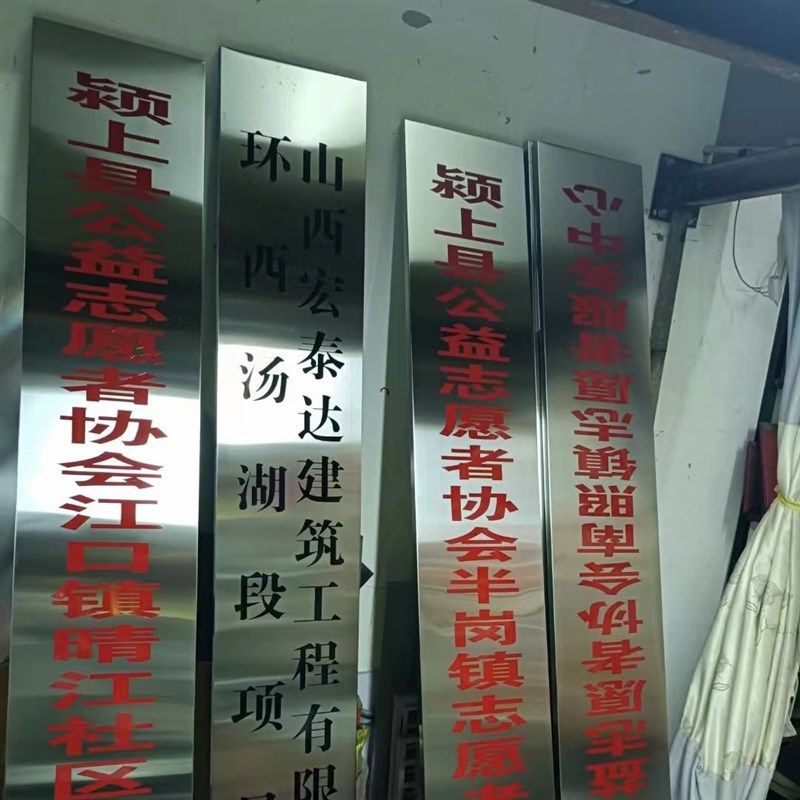 颍上县公益志愿者协会江口镇晴江社区
山西宏泰达建筑工程有限
环西汤湖段项
颍上县公益志愿者协会半岗镇志愿者
益志愿者协会南照镇志愿者服务中心